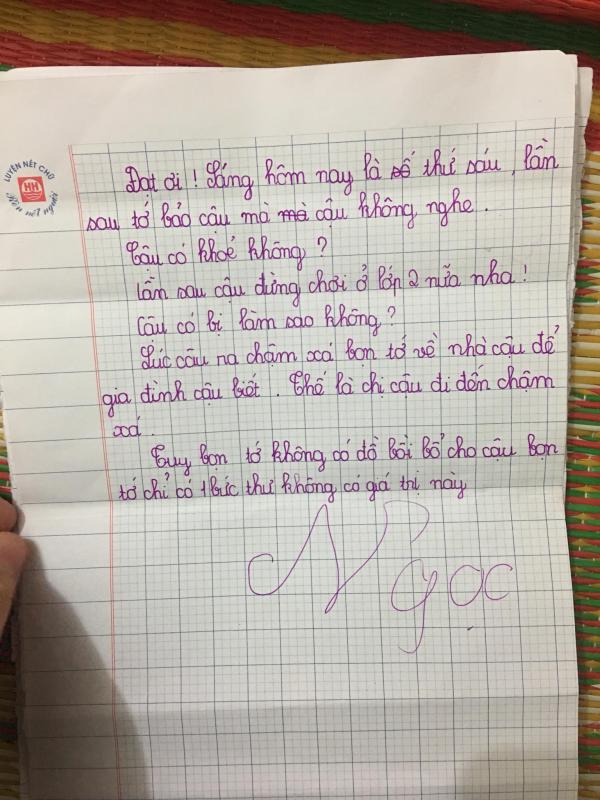 LUYỆN NÉT CHỮ
HH
Rèn nết người
Đạt ơi ! Sáng hôm nay là số thứ sáu , lần
sau tớ bảo cậu mà mà cậu không nghe .
Cậu có khoẻ không ?
Lần sau cậu đừng chơi ở lớp 2 nữa nha !
Cậu có bị làm sao không ?
Lúc cậu ra chậm xá bọn tớ về nhà cậu để
gia đình cậu biết . Thế là chị cậu đi đến chậm
xá .
Tuy bọn tớ không có đồ bồi bổ cho cậu bọn
tớ chỉ có 1 bức thư không có giá trị này
Ngọc